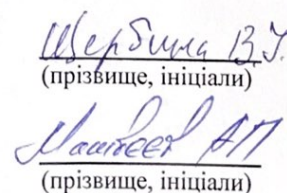 Щербина В.У.
(прізвище, ініціали)
Матвеев АП
(прізвище, ініціали)